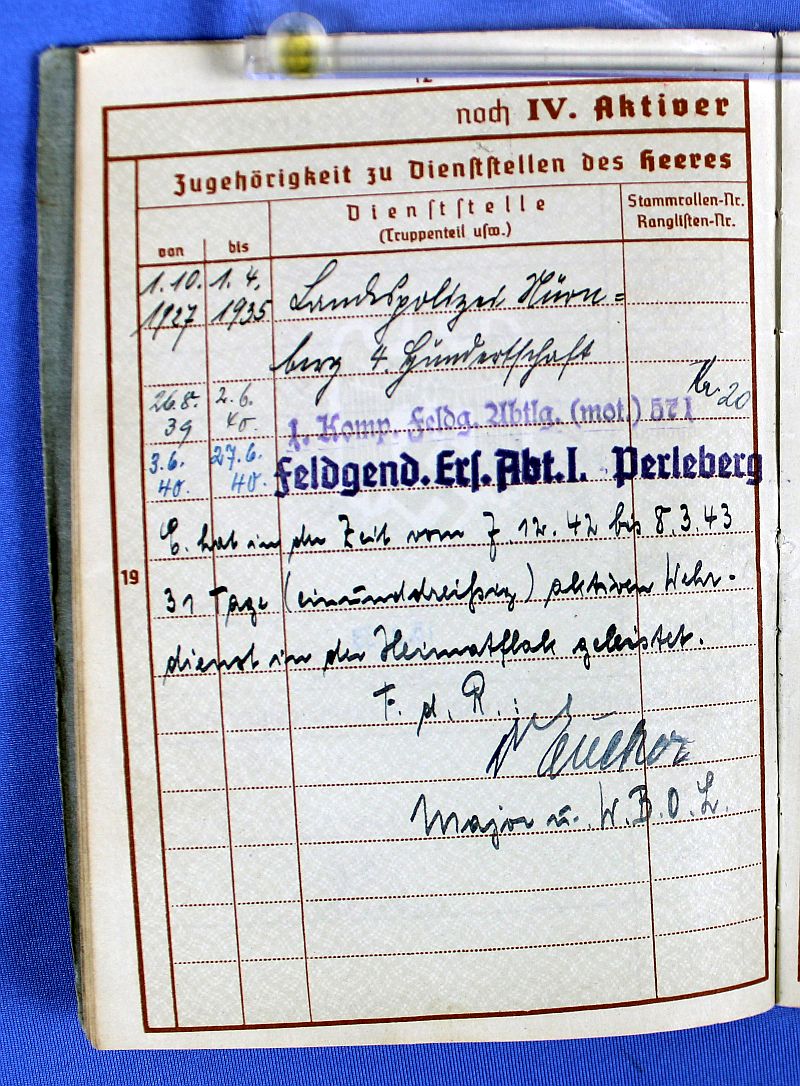 12
noch IV. Aktiver
Zugehörigkeit zu Dienststellen des Heeres
von bis Dienststelle (Truppenteil usw.) Stammrollen-Nr. Ranglisten-Nr.
1.10. 1.4. Landespolizei Nürn=
1927 1935
berg 4. Hundertschaft
26.8. 2.6. 1. Komp. Feldg. Abtlg. (mot.) 571 Nr. 20
39 40.
3.6. 27.6. Feldgend. Ers. Abt. I. Perleberg
40. 40.
E. hat in der Zeit vom 7.12.42 bis 8.3.43
19
31 Tage (einunddreißig) aktiven Wehr-
dienst in der Heimatflak geleistet.
F. d. R.:
Major u. W.B.O. L.